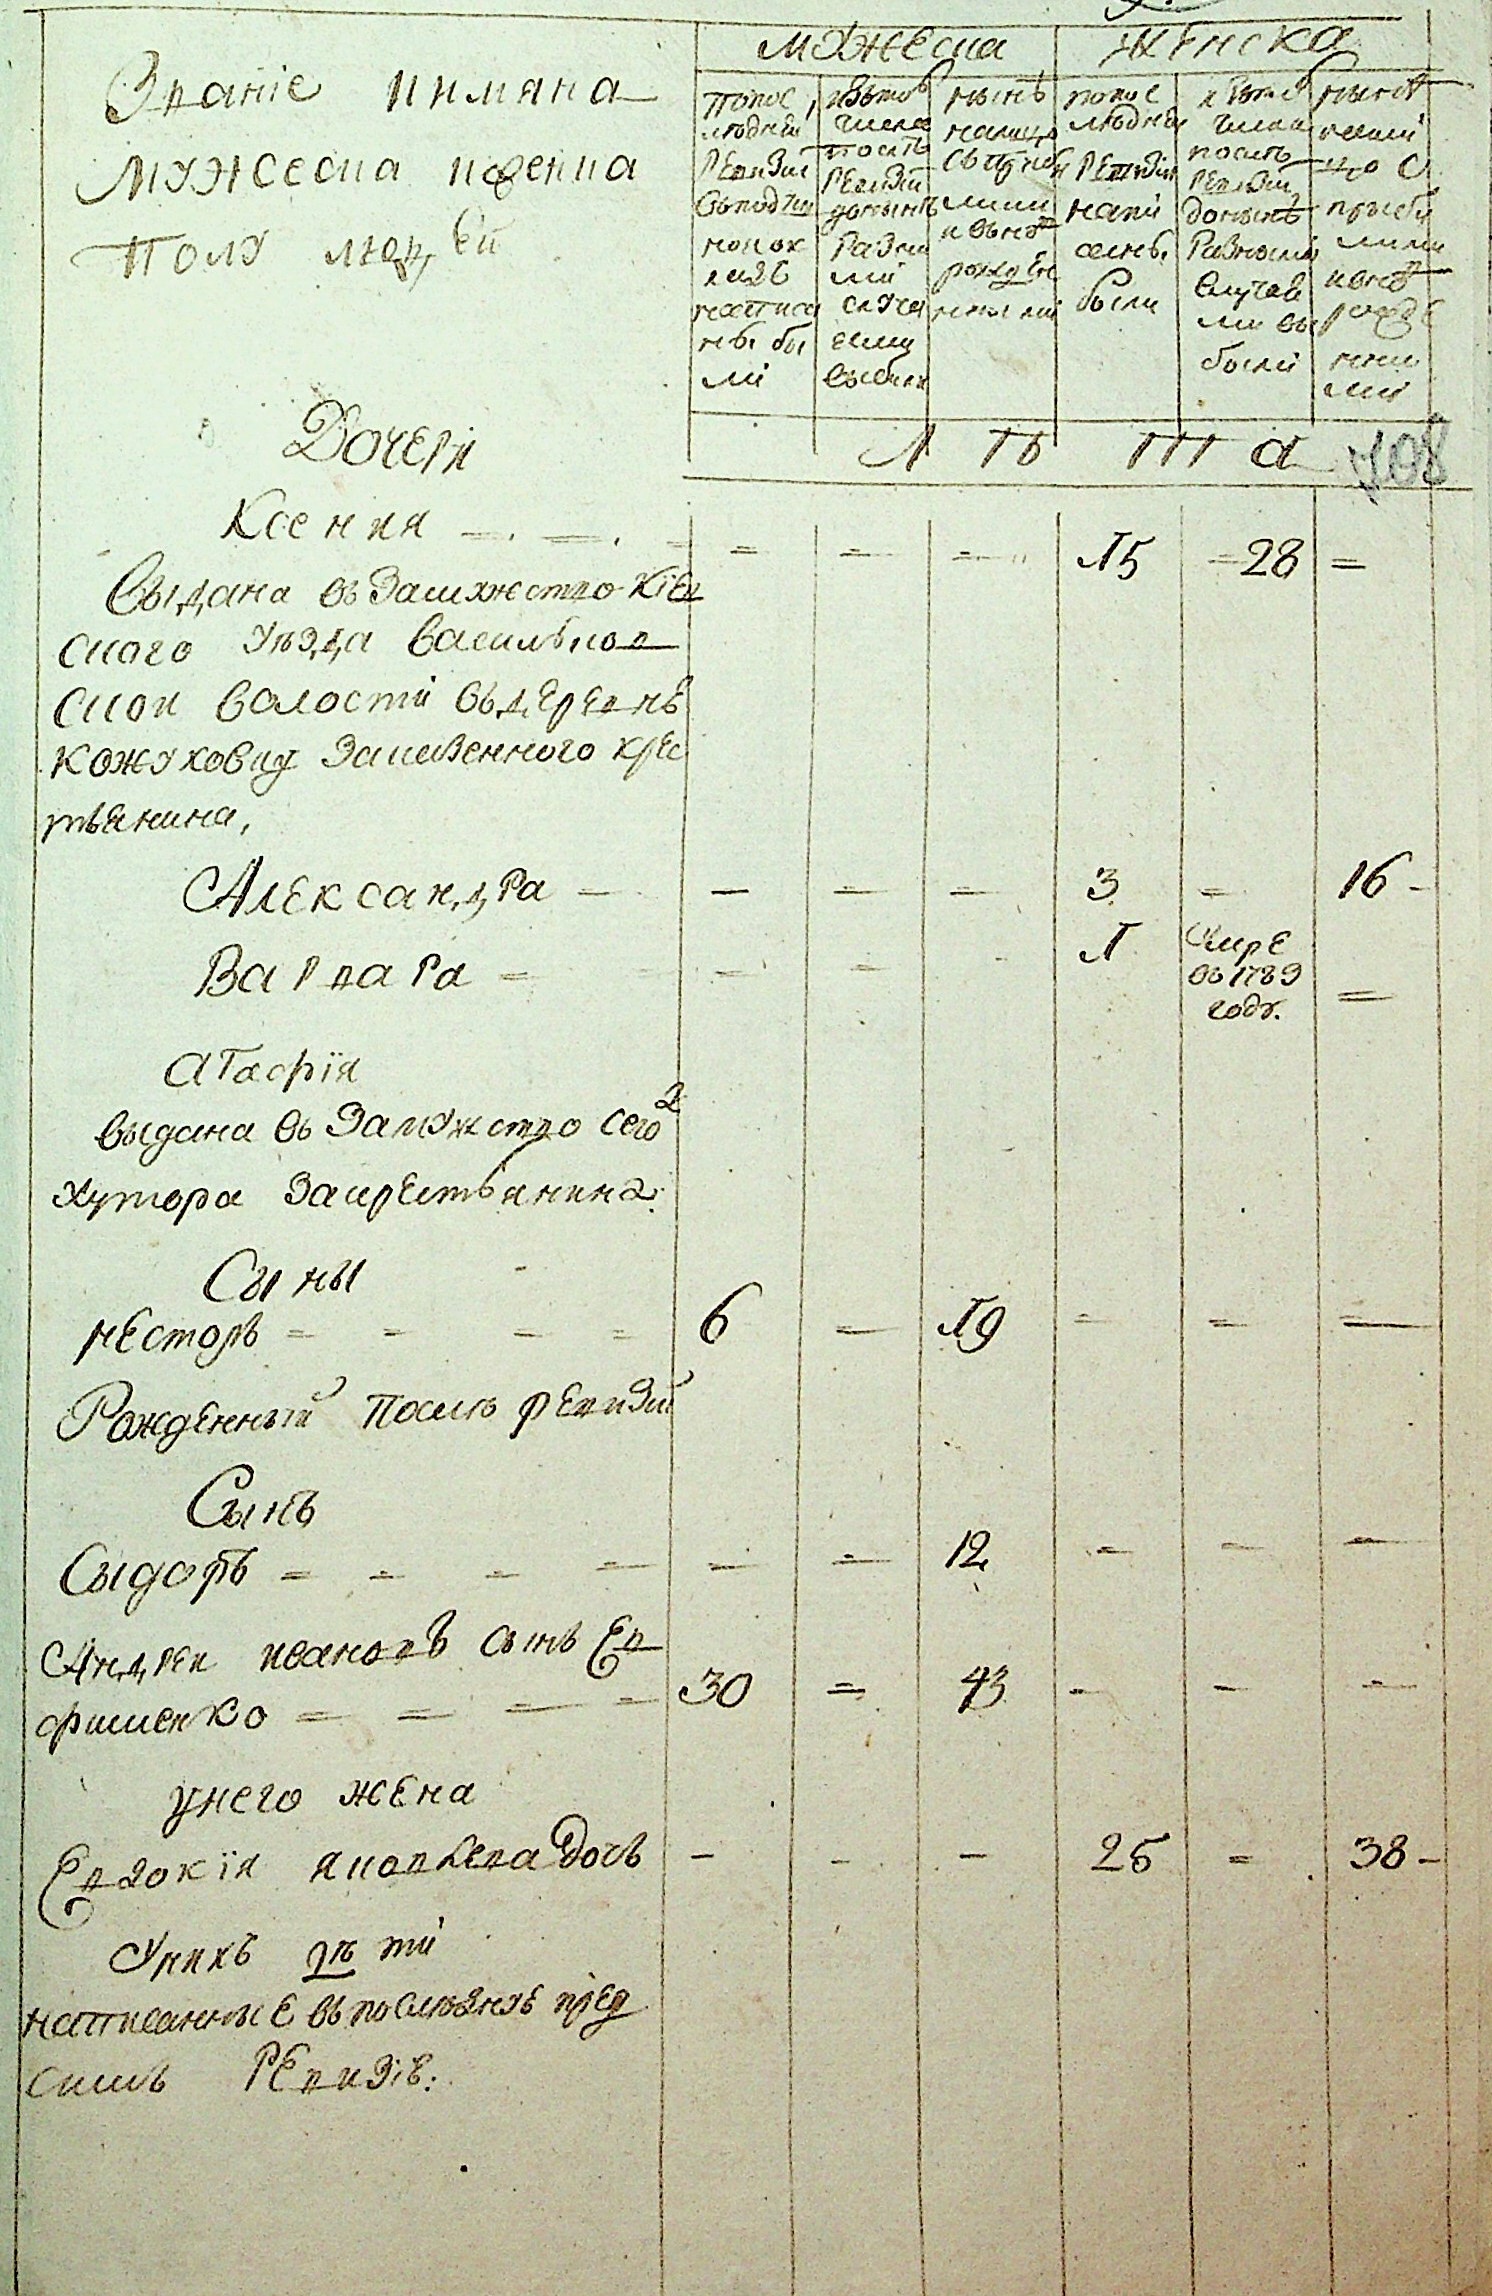 Званіе и имяна
мужеска и женска
полу людей
мужеска
женска
по пос
людней
ревизіи
въ подуш
ном ок
ладѣ
написа
ны бы
ли
изъ того
числа
послѣ
ревизіи
донынѣ
разны
ми
случа
ями
выбыли
нынѣ
налицо
съ прибы
лыми
и вновь
рожден
ными
по пос
людней
ревизіи
напи
саны
были
изъ того
числа
послѣ
ревизіи
донынѣ
разными
случая
ми вы
были
нынѣ
нали
цо с
прибы
лыми
и внов
рожде
нны
ми
лѣта
708
Дочери
Ксения 15 28
Выдана въ замужество Кіев
ского уѣзда Васильков
ской волости въ деревнѣ
Кожуховку за казенного крес
тьянина,
Александра 3 16
Варвара 1 умре
въ 1789
году.
Агафія
выдана въ замужство сего
хутора за крестьянина
Сыны
Несторъ 6 19
Рожденный послѣ ревизіи
Сынъ
Сыдоръ 12
Андрей Ивановъ сынъ Ев
фименко 30 43
у него жена
Евдокія Яковлева дочь 25 38
У нихъ дѣти
написанные въ послѣдней пред
симъ ревизіе: